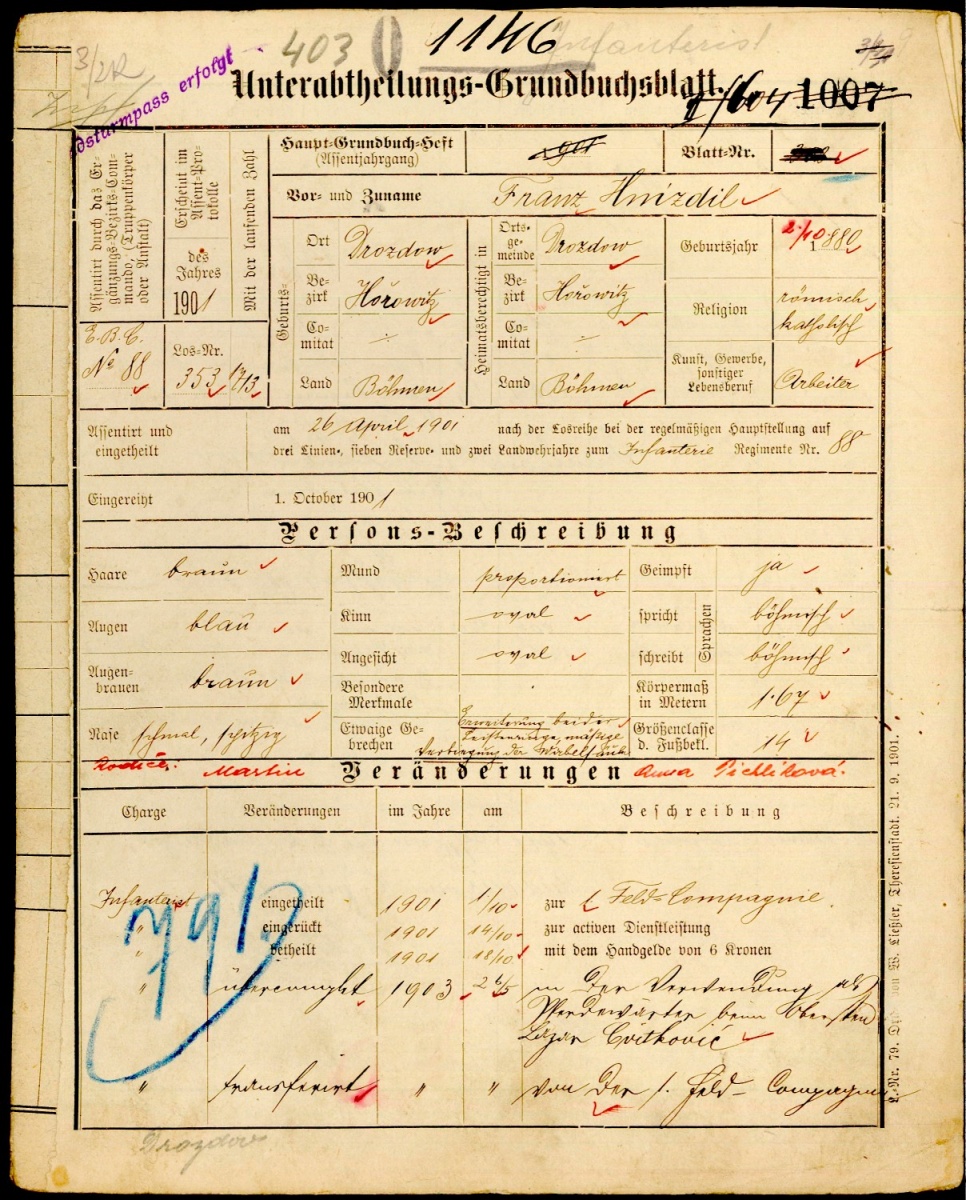 3/2R
403
0
1146
Infanterist
dsturmpass erfolgt
Unterabtheilungs-Grundbuchsblatt.
1/604 1007
Assentirt durch das Er-
gänzungs-Bezirks-Com-
mando, (Truppenkörper
oder Anstalt)
E.B.C.
No 88
Erscheint im
Assent-Pro-
tokolle
des
Jahres
1901
Los-Nr.
353
Mit der laufenden Zahl
1713
Haupt-Grundbuch-Heft
(Assentjahrgang)
1901
Blatt-Nr.
Vor- und Zuname Franz Hnízdil
Geburts-
Ort Drozdow
Be-
zirk Hořowitz
Co-
mitat ÷
Land Böhmen
Heimatsberechtigt in
Orts-
ge-
meinde Drozdow
Be-
zirk Hořowitz
Co-
mitat ÷
Land Böhmen
Geburtsjahr 2/10 1880
Religion römisch
katholisch
Kunst, Gewerbe,
sonstiger
Lebensberuf Arbeiter
Assentirt und
eingetheilt
am 26 April 1901 nach der Losreihe bei der regelmäßigen Hauptstellung auf
drei Linien-, sieben Reserve- und zwei Landwehrjahre zum Infanterie Regimente Nr. 88
Eingereiht 1. October 1901
Persons-Beschreibung
Haare braun
Augen blau
Augen-
brauen braun
Nase schmal, spitzig
Mund proportionirt
Kinn oval
Angesicht oval
Besondere
Merkmale
Etwaige Ge-
brechen
Erweiterung beider
Leistenringe, mäßige
Verbiegung der Wirbelsäule
Geimpft ja
Sprachen
spricht böhmisch
schreibt böhmisch
Körpermaß
in Metern 1·67
Größenclasse
d. Fußbekl. 14
Rodiče: Martin Veränderungen Anna Pichlíková.
Charge Veränderungen im Jahre am Beschreibung
Infanterist eingetheilt 1901 1/10 zur 1 Feld-Compagnie.
" eingerückt 1901 14/10 zur activen Dienstleistung
" betheilt 1901 18/10 mit dem Handgelde von 6 Kronen
" übercomplet 1903 26/5 in der Verwendung als
Pferdewärter beim Obersten
Lazar Cvitković
" transferirt " " von der 1. Feld-Compagnie
791
Drozdow
L.-Nr. 79. W. Ließler, Theresienstadt. 21. 9. 1901.